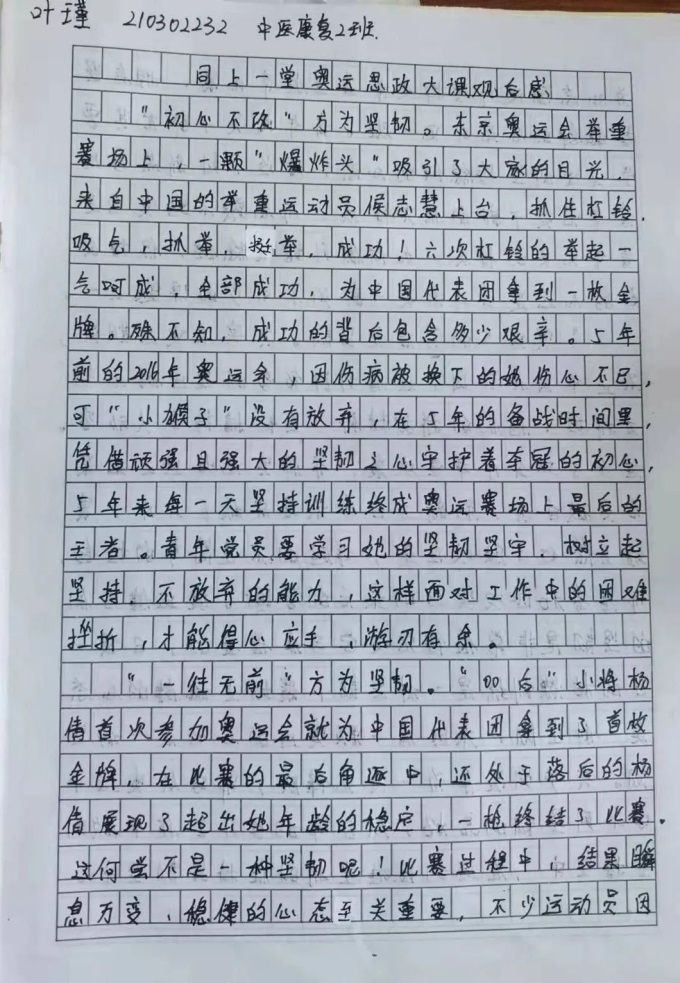 叶瑾 210302232 中医康复2班
同上一堂奥运思政大课观后感
"初心不改"方为坚韧。东京奥运会举重
赛场上,一颗"爆炸头"吸引了大家的目光,
来自中国的举重运动员侯志慧上台,抓住杠铃,
吸气,抓举,挺举,成功!六次杠铃的举起一
气呵成,全部成功,为中国代表团拿到一枚金
牌。殊不知,成功的背后包含多少艰辛。5年
前的2016年奥运会,因伤病被换下的她伤心不已,
可"小猴子"没有放弃,在5年的备战时间里,
凭借顽强且强大的坚韧之心守护着夺冠的初心,
5年来每一天坚持训练终成奥运赛场上最后的
王者。青年党员要学习她的坚韧坚守,树立起
坚持、不放弃的能力,这样面对工作中的困难
挫折,才能得心应手,游刃有余。
"一往无前"方为坚韧。"00后"小将杨
倩首次参加奥运会就为中国代表团拿到了首枚
金牌,在比赛的最后角逐中,还处于落后的杨
倩展现了起出她年龄的稳定,一枪终结了比赛。
这何尝不是一种坚韧呢!比赛过程中,结果瞬
息万变,稳健的心态至关重要,不少运动员因